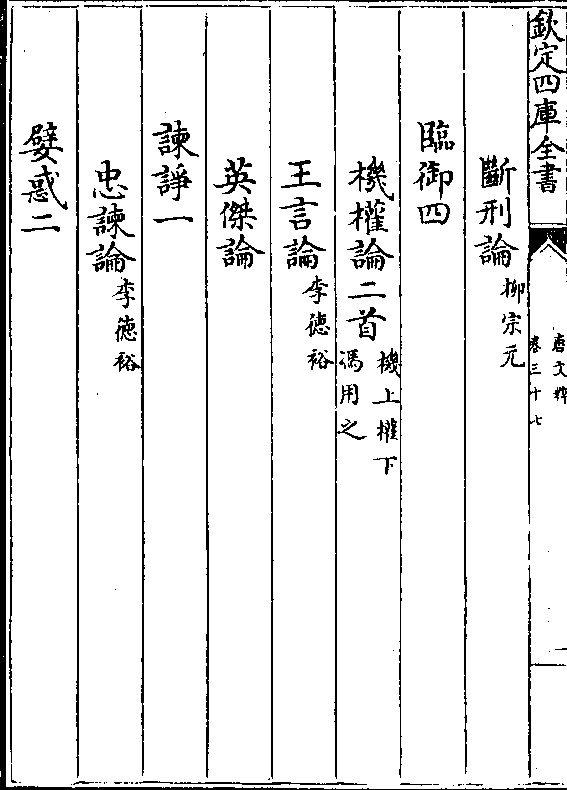 欽定四庫全書
唐文粹
卷三十七
斷刑論柳宗元
臨御四
機權論二首機上權下
馮用之
王言論李德裕
英傑論
諫諍一
忠諫論李德裕
嬖惑二